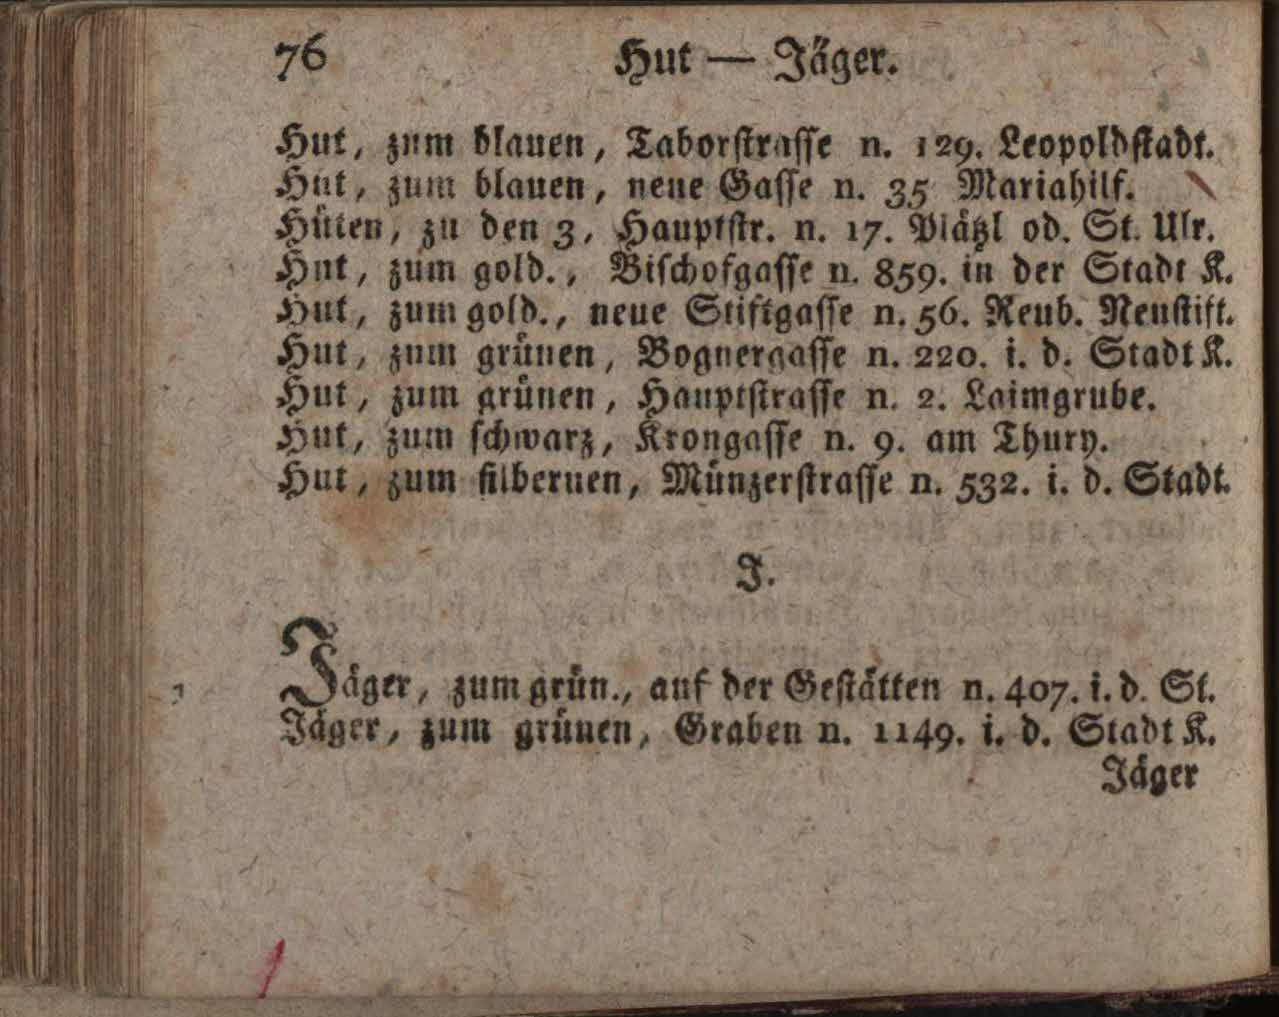 76 Hut — Jäger.
Hut, zum blauen, Taborstrasse n. 129. Leopoldstadt.
Hut, zum blauen, neue Gasse n. 35 Mariahilf.
Hüten, zu den 3, Hauptstr. n. 17. Plätzl od. St. Ulr.
Hut, zum gold., Bischofgasse n. 859. in der Stadt K.
Hut, zum gold., neue Stiftgasse n. 56. Neub. Neustift.
Hut, zum grünen, Bognergasse n. 220. i. d. Stadt K.
Hut, zum grünen, Hauptstrasse n. 2. Laimgrube.
Hut, zum schwarz, Krongasse n. 9. am Thury.
Hut, zum silbernen, Münzerstrasse n. 532. i. d. Stadt.
J.
Jäger, zum grün., auf der Gestätten n. 407. i. d. St.
Jäger, zum grünen, Graben n. 1149. i. d. Stadt K.
Jäger